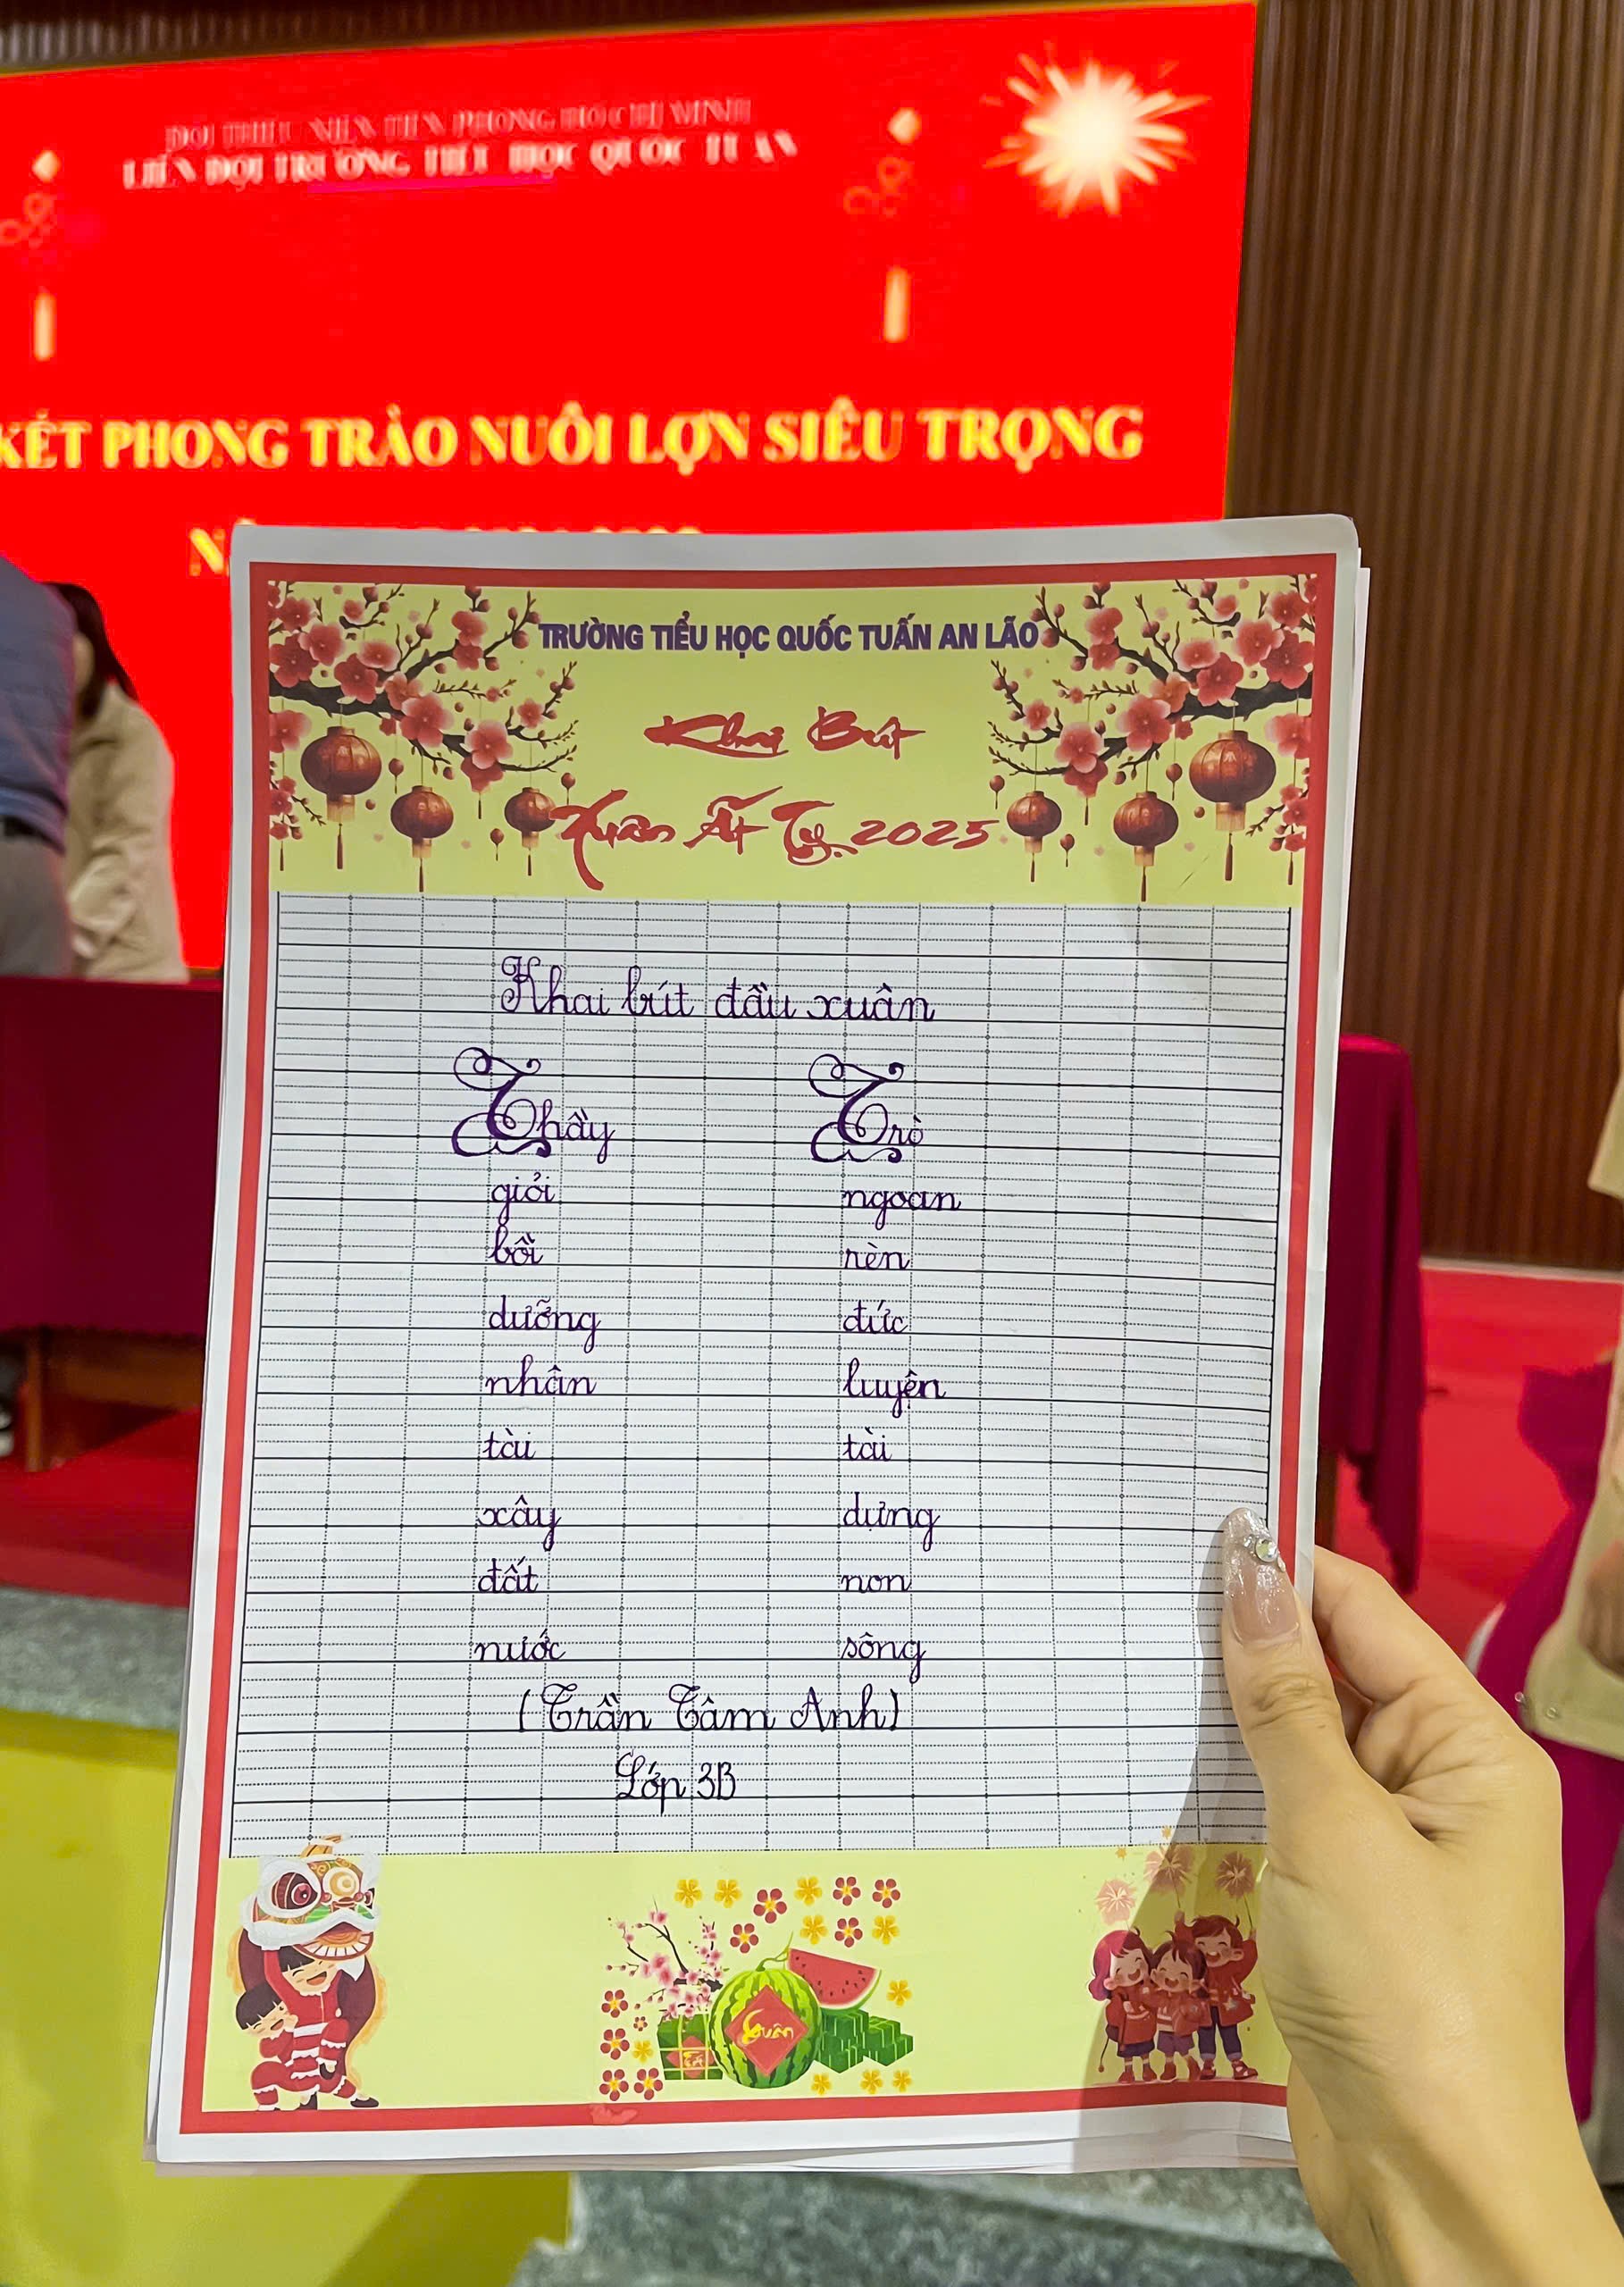 ĐỘI THIẾU NIÊN TIỀN PHONG HỒ CHÍ MINH
LIÊN ĐỘI TRƯỜNG TIỂU HỌC QUỐC TUẤN
KẾT PHONG TRÀO NUÔI LỢN SIÊU TRỌNG
TRƯỜNG TIỂU HỌC QUỐC TUẤN AN LÃO
Khai Bút
Xuân Ất Tỵ 2025
Khai bút đầu xuân
Thầy Trò
giỏi ngoan
bồi rèn
dưỡng đức
nhân luyện
tài tài
xây dựng
đất non
nước sông
(Trần Tâm Anh)
Lớp 3B
Xuân